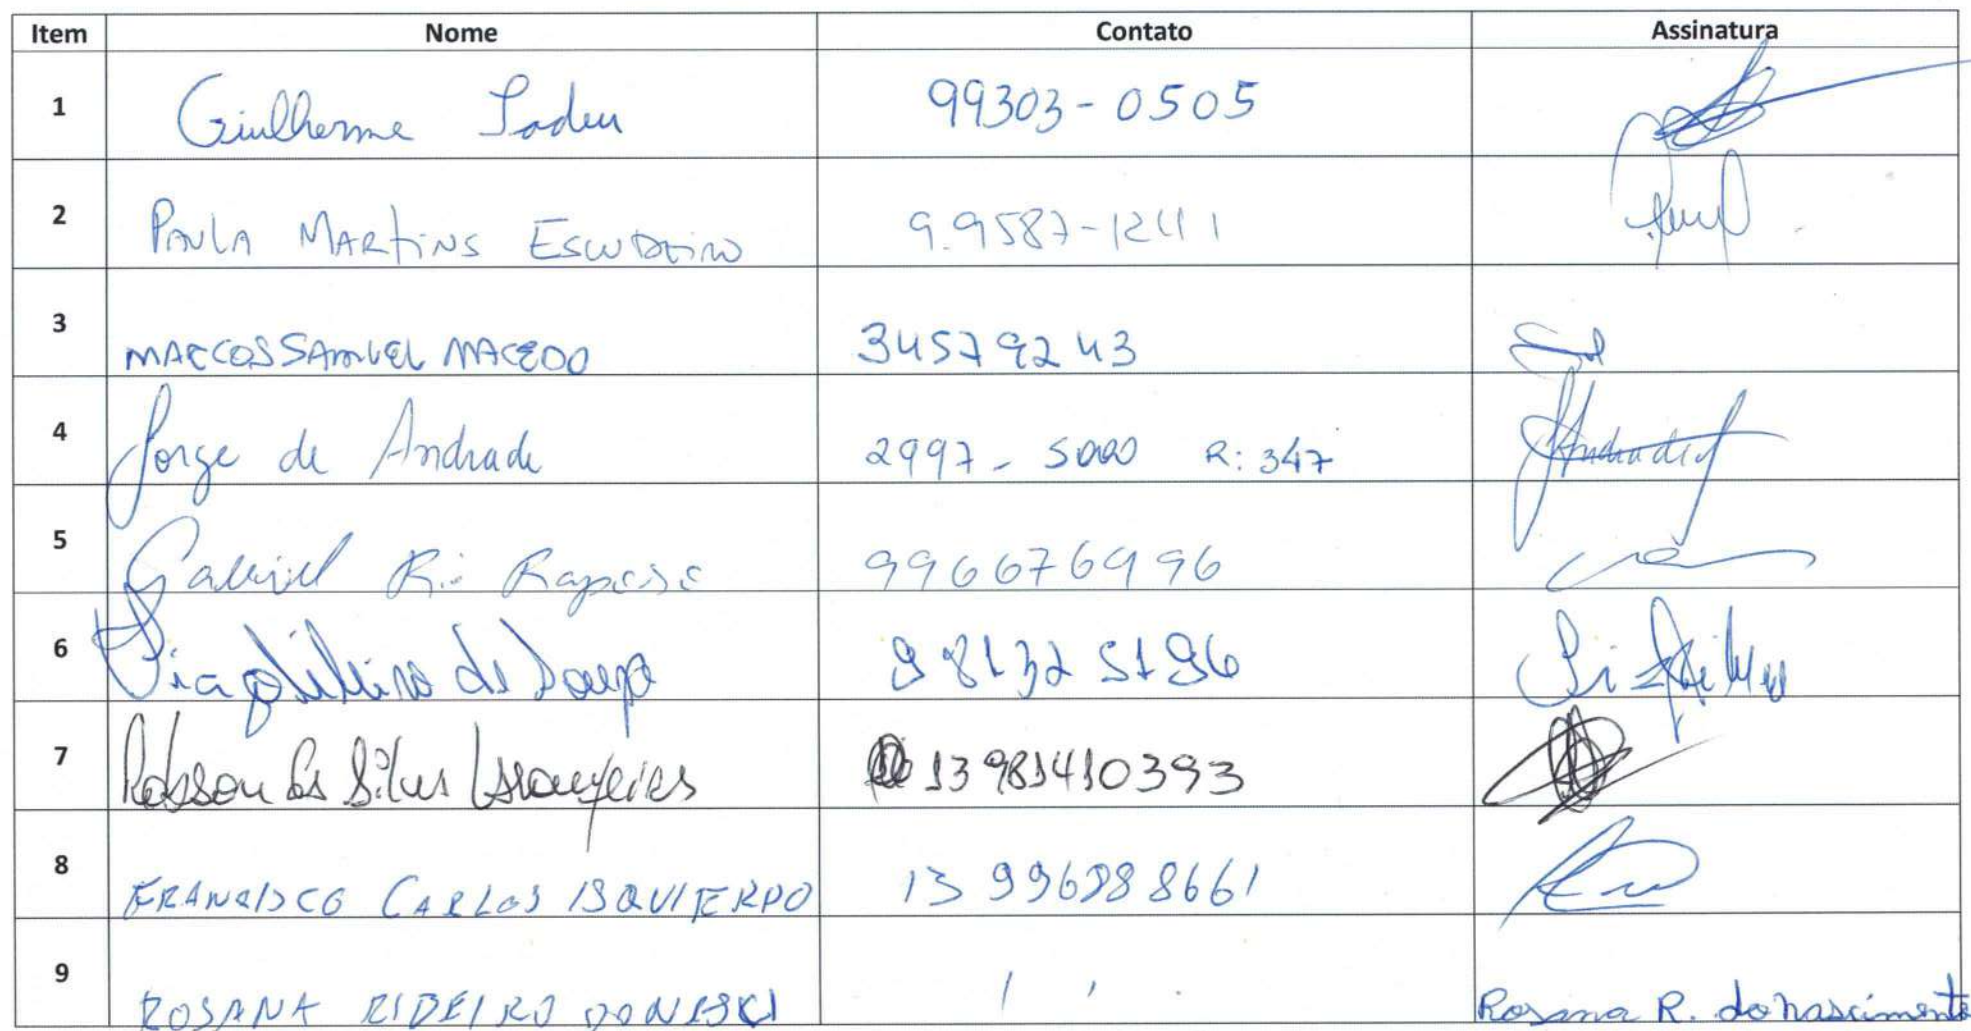 Item Nome Contato Assinatura
1 Guilherme Tadeu 99303-0505
2 PAULA MARTINS ESCUDEIRO 9.9587-1241
3 MARCOS SAMUEL MACEDO 34579243
4 Jorge de Andrade 2997-5000 R: 347 Andrade
5 Gabriel Raposo 996676996
6 de Souza 981325196
7 Robson da Silva 13 981410393
8 FRANCISCO CARLOS ISQUIERDO 13 996988661
9 ROSANA RIBEIRO Rosana R. do nascimento